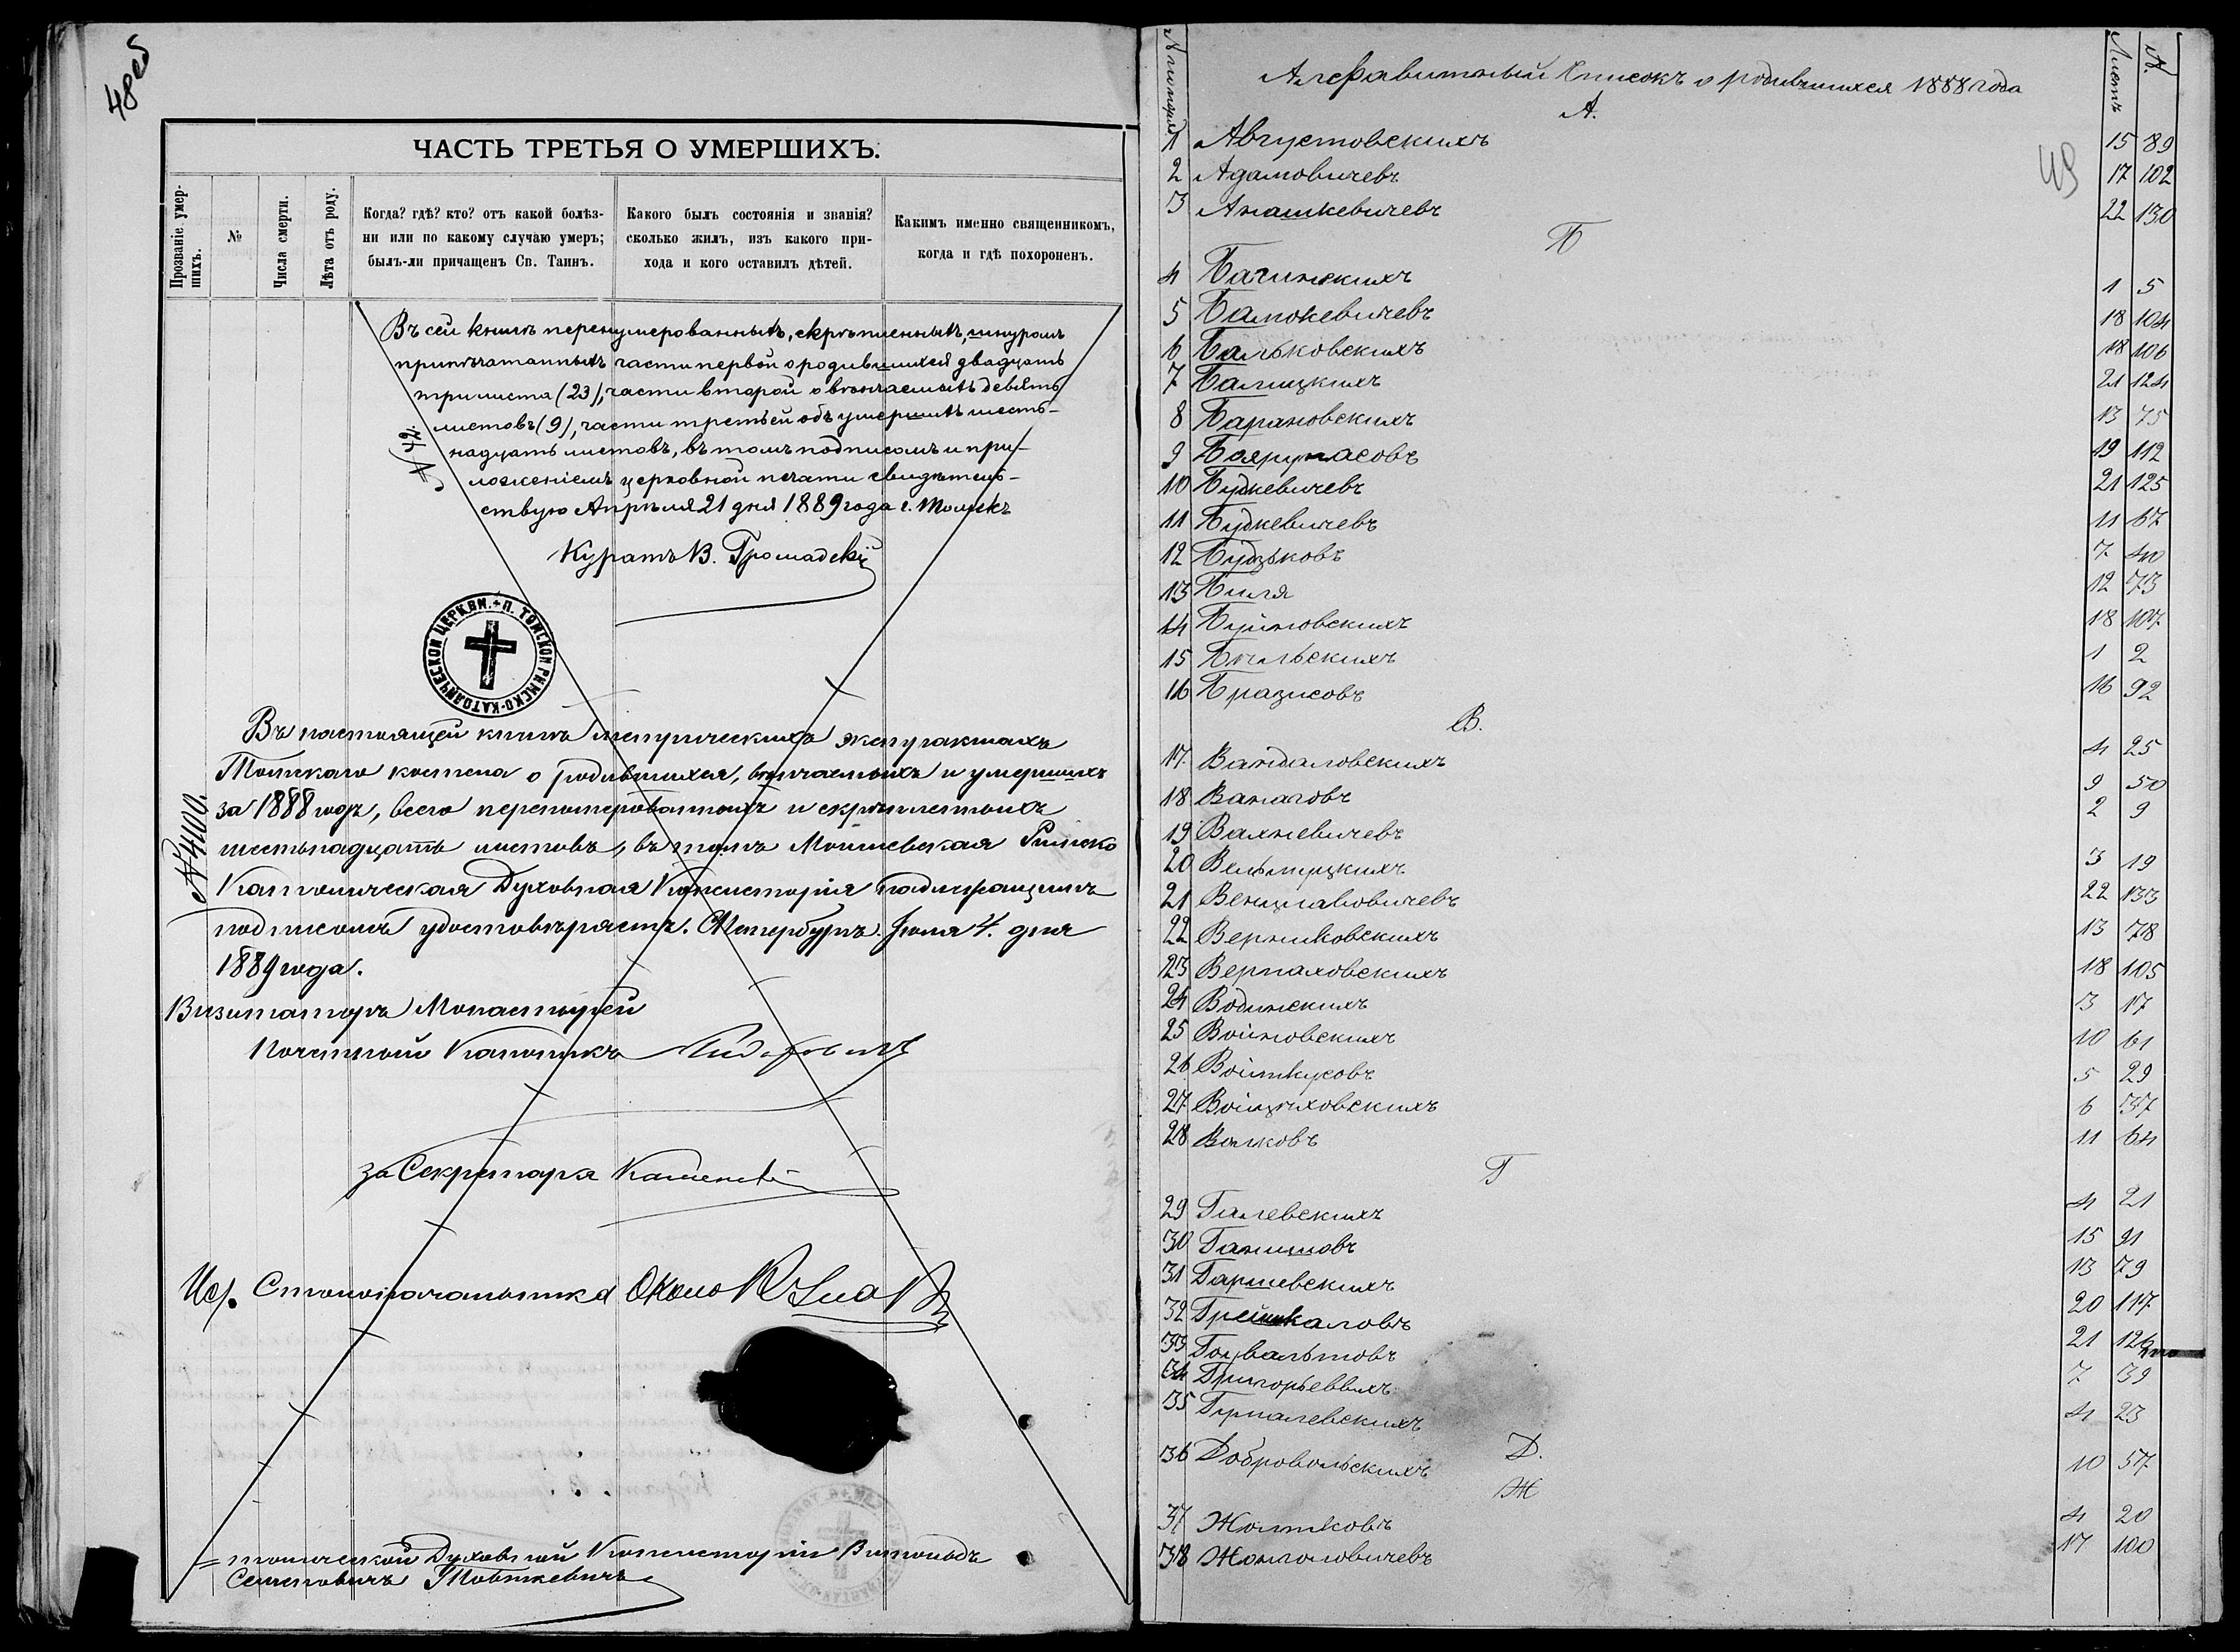 48 об
ЧАСТЬ ТРЕТЬЯ О УМЕРШИХЪ.
Прозваніе умер-
шихъ.
№
Числа смерти.
Лѣта отъ роду.
Когда? гдѣ? кто? отъ какой болѣз-
ни или по какому случаю умеръ;
былъ-ли причащенъ Св. Таинъ.
Какого былъ состоянія и званія?
сколько жилъ, изъ какого при-
хода и кого оставилъ дѣтей.
Какимъ именно священникомъ,
когда и гдѣ похороненъ.
Въ сей книгѣ перенумерованныхъ, скрѣпленныхъ, шнуромъ
припечатанныхъ части первой о родившихся двадцать
три листа (23), части второй о вѣнчаемыхъ девять
листовъ (9), части третьей объ умершихъ шест-
надцать листовъ, въ томъ подписомъ и при-
ложеніемъ церковной печати свидѣтель-
ствую Апрѣля 21 дня 1889 года г. Томскъ
№ 42.
Куратъ В. Громадскій
П. ТОМСКОЙ РИМСКО-КАТОЛИЧЕСКОЙ ЦЕРКВИ.
Въ настоящей книгѣ метрическихъ экстрактахъ
Томскаго костела о родившихся, вѣнчаемыхъ и умершихъ
за 1888 годъ, всего перенумерованныхъ и скрѣпленныхъ
шестьнадцать листовъ, въ томъ Могилевская Римско
Католическая Духовная Консисторія надлежащимъ
подписомъ удостовѣряетъ. СПетербургъ. Іюля 4. дня
1889 года.
№ 4100.
Визитаторъ Монастырей
Почетный Каноникъ
за Секретаря
Столоначальника
Духовной Консисторіи Витольдъ
Семеновичъ
Алфавитный Списокъ о родившихся 1888 года
Листъ
№.
49
А.
1 Августовскихъ 15 89
2 Адамовичевъ 17 102
3 Анашкевичевъ 22 130
Б
4 Багинскихъ 1 5
5 18 104
6 Бальковскихъ 18 106
7 Балицкихъ 21 124
8 Барановскихъ 13 75
9 19 112
10 Будкевичевъ 21 125
11 Будкевичевъ 11 67
12 Будзьковъ 7 40
13 Биля 12 73
14 Буйновскихъ 18 107
15 Бѣльскихъ 1 2
16 Бразисовъ 16 92
В.
17 Вандаловскихъ 4 25
18 Ванаговъ 9 50
19 Вахневичевъ 2 9
20 3 19
21 Венцлавовичевъ 22 133
22 Верниковскихъ 13 78
23 18 105
24 Водинскихъ 3 17
25 Войновскихъ 10 61
26 Войткусовъ 5 29
27 Войцѣховскихъ 6 37
28 Волковъ 11 64
Г
29 Галевскихъ 4 21
30 15 91
31 13 79
32 20 117
33 21
34 Григорьевыхъ 7 39
35 4 23
Д.
36 Добровольскихъ 10 57
Ж
37 4 20
38 17 100